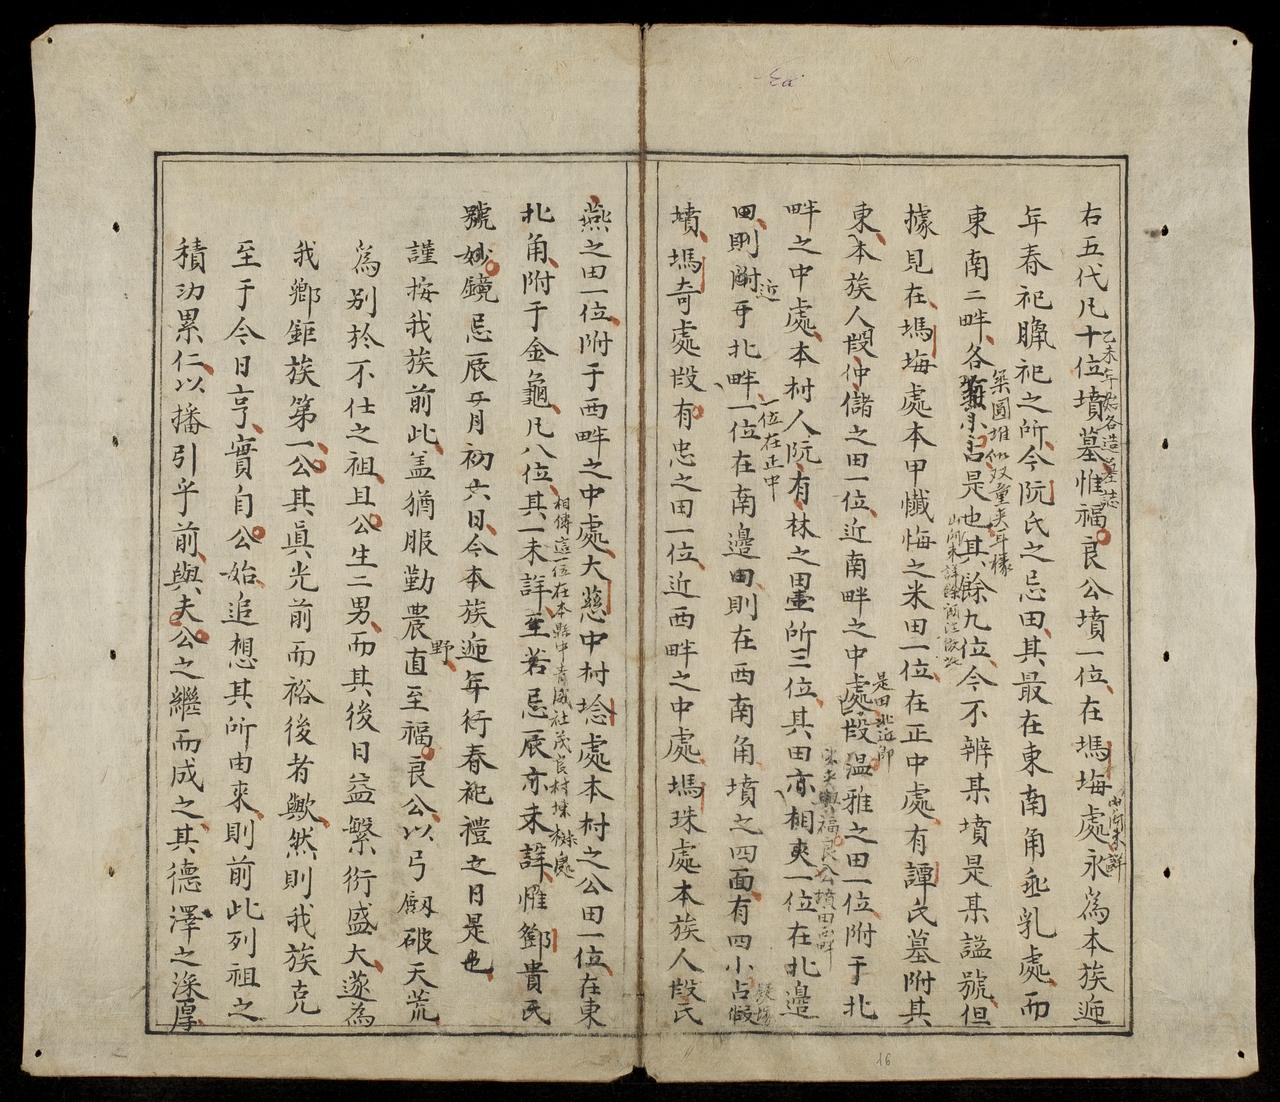 右五代凡十位墳墓惟福良公墳一位在塢塸處永為本族遞
乙未年始各造墓誌
內向未詳
年春祀臘祀之所今阮氏之忌田其最在東南角垂乳處而
東南二畔各有小占是也其餘九位今不辨某墳是某謚號但
築圓堆似双童夾耳樣
據見在塢塸處本甲懺悔之米田一位在正中處有譚氏墓附其
東本族人段仲儲之田一位近南畔之中處段温雅之田一位附于北
是田北近即
福良公墳田西畔
畔之中處本村人阮有林之田壹所三位其田亦相夾一位在北邊
一位在正中
田則附于北畔一位在南邊田則在西南角墳之四面有四小占
近
墳塢奇處段有忠之田一位近西畔之中處塢珠處本族人段氏
燕之田一位附于西畔之中處大慈中村埝處本村之公田一位在東
北角附于金龜凡八位其一未詳至若忌辰亦未詳惟鄧貴氏
相傳這一位在本縣中青威社茂良村埬楜處
號妙鏡忌辰二月初六日今本族遞年行春祀禮之日是也
謹按我族前此盖猶服勤農直至福良公以弓劔破天荒
野
為別於不仕之祖且公生二男而其後日益繁衍盛大遂為
我鄉鉅族第一公其真光前而裕後者歟然則我族克
至于今日亨實自公始追想其所由來則前此列祖之
積功累仁以播引乎前與夫公之繼而成之其德澤之深厚
16